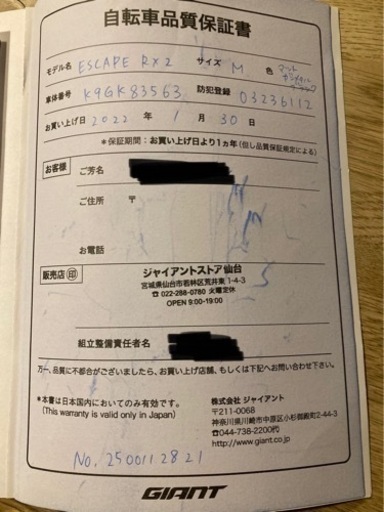 自転車品質保証書
モデル名 ESCAPE RX2 サイズ M 色 マット
ブラック
車体番号 K9GK83563 防犯登録 03236112
お買い上げ日 2022 年 1 月 30 日
*保証期間：お買い上げ日より1ヵ年（但し品質保証規定による）
お客様 ご芳名
ご住所 〒
お電話
販売店 印 ジャイアントストア仙台
宮城県仙台市若林区荒井東 1-4-3
☎ 022-288-0780 火曜定休
OPEN 9:00-19:00
組立整備責任者名
万一、品質に不都合がございましたら、お買い上げ店舗、もしくは下記へお問い合わせ下さい。
*本書は日本国内においてのみ有効です。
(This warranty is valid only in Japan)
株式会社 ジャイアント
〒211-0068
神奈川県川崎市中原区小杉御殿町2-44-3
☎ 044-738-2200㈹
http://www.giant.co.jp
No. 2500112821
GIANT